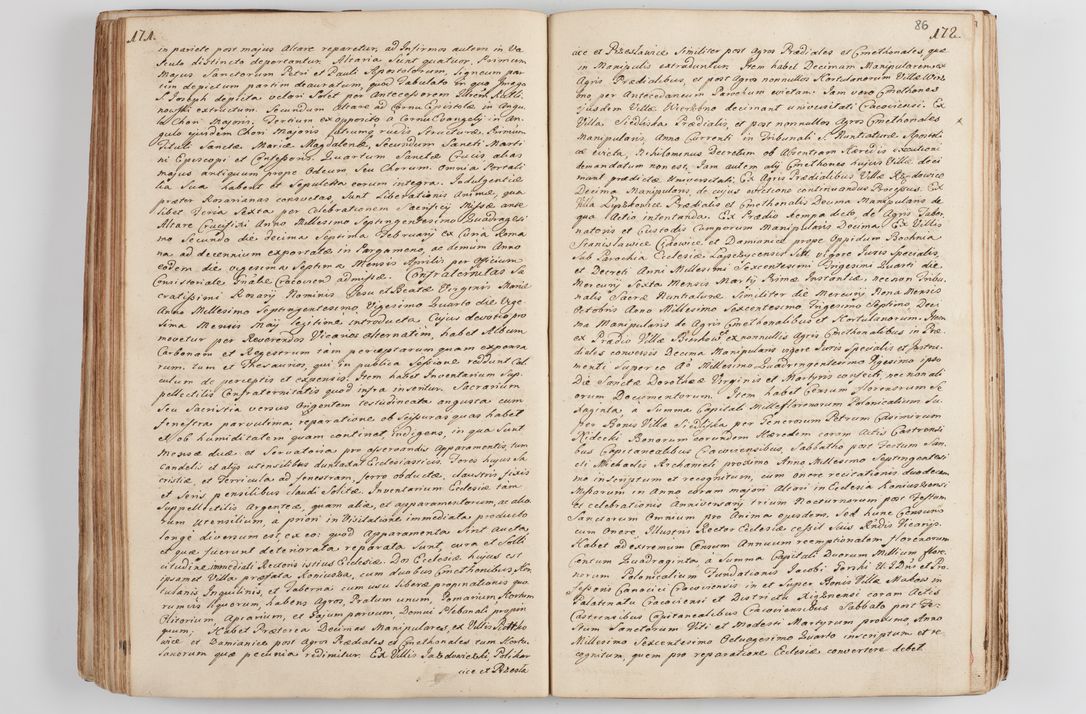 171.
in pariete post majus Altare reparetur, ad Infirmos autem in Va
sculo distincto deportantur. Altaria Sunt quatuor. Primum
Majus Sanctorum Petri et Pauli Apostolorum, Ligneum par
tim depictum partim deauratum, quod Tabulato in quo Imago
S. Joseph depicta velari Solet per Antecessorem
extructum. Secundum Altare a Cornu Epistolæ in Angu
lo Chori Majoris. Tertium ex opposito a Cornu Evangelij in An
gulo ejusdem Chori Majoris utrumq; rudis Structuræ. Primum
Tituli Sanctæ Mariæ Magdalenæ, Secundum Sancti Marti
ni Episcopi et Confessoris. Quartum Sanctæ Crucis, alias
majus antiquum prope Odeum Seu Chorum. Omnia Porta
tia Sua habent et Sepulchra eorum integra. Indulgentiæ
præter Rosarianas consuetas, Sunt liberationis Animæ, qua
libet Feria Sexta per Celebrationem Sacrificij Missæ ante
Altare Crucifixi Anno Millesimo Septingentesimo Quadragesi
mo Secundo die decima Septima February ex Curia Roma
na ad decennium exportatæ in Pergameno, ac demum Anno
eodem die vigesima Septima Mensis Aprilis per Officium
Consistoriale Gnale Cracovien admissæ. Confraternitas Sa
cratissimi Rosarij Nominis Jesu et Beatæ Virginis Mariæ
Anno Millesimo Septingentesimo Vigesimo Quarto die Vige
sima Mensis Maij legitime introducta Cujus devotio pro
movetur per Reverendos Vicarios alternatim, habet Album
Carbonam et Regestrum tam perceptarum quam expensa
rum, tum et Thesaurios, qui in publica Sessione reddunt Cal
culum de perceptis et expensis. Item habet Inventarium Sup
pellectilis Confraternitatis quod infra inseritur. Sacrarium
Seu Sacristia versus Orientem testudineata angusta cum
fenestra parvulima, reparatione ob Scissuras quas habet
et ob humiditatem quam continet, indigens, in qua Sunt
Mensæ duæ et Servatoria pro asservandis Apparamentis, tum
Candelis et alijs utensilibus duntaxat Ecclesiasticis. Fores hujus Sa
cristiæ, et Ferricula ad fenestram, ferro obductæ, claustris fixis
et Seris pensilibus claudi Solitæ. Inventarium Ecclesiæ tam
Suppellectilis Argenteæ, quam aliæ, et apparamentorum, ac alio
rum Utensilium, a priori in Visitatione immediata producto
longe diversum est, ex eo: quod Apparamenta Sint aucta,
et quæ fuerunt deteriorata reparata Sunt, cura et Solli
citudine immediati Rectoris istius Ecclesiæ. Dos Ecclesiæ hujus est
ipsamet Villa præfata Koniusza, cum duobus Cmethonibus Hor
tulanis Inquilinis, et Taberna cum usu liberæ propinationis quo
rumvis liquorum, habens Agros, Pratum unum, Pomarium, Hortum
Olitorium, Apiarium, et Gajum parvum Domui Plebanali propin
quum. Habet Præterea Decimas Manipulares, ex Villis
vice et Damianice post Agros Prædiales et Cmethonales tum Hortu
lanorum quæ pecunia redimitur. Ex Villis
cice et Przesla
86
172.
cice et Przesławice Similiter post Agros Prædiales et Cmethonales, quæ
in Manipulis extraduntur. Item habet Decimam Manipularem, ex
Agris Prædialibus, et post agros nonnullos Hortulanorum Villæ Wierz
bno per Antecedaneum Parochum evictam. Jam vero Cmethones
ejusdem Villæ Wierzbno decimant Universitati Cracoviensi. Ex
Villa Siedliska Prædialis, et post nonnullos Agros Cmethonales
Manipularis, Anno Currenti in Tribunali S. Nuntiaturæ Apostoli
cæ evicta, Nihilominus Decretum ob Absentiam Hæredis executioni
demandatum non est, Jam autem alij Cmethones hujus Villæ deci
mant prædictæ Universitati. Ex Agris Prædialibus Villæ Rzędowice
Decima Manipularis, de cujus evictione continuandus Processus. Ex
Villa Łyszkowice Prædialis et Cmethonalis Decima Manipularis de
qua Actio intentanda. Ex Prædio Kempa dicto, de Agris Taber
natoris et Custodis Camporum Manipularis Decima. Ex Villis
Stanisławice Cikowice et Damianice prope Oppidum Bochnia
Sub Parochia Ecclesiæ Łapczycensis Sitt vigore Juris Specialis
et Decreti Anni Millesimi Sexcentesimi Trigesimi Quarti die
Mercurij Sexta Mensis Martij Primæ Instantiæ, necnon Tribu
nalis Sacræ Nuntiaturæ Similiter die Mercurij Nona Mensis
Octobris Anno Millesimo Sexcentesimo Trigesimo Septimo. Deci
ma Manipularis de Agris Cmethonalibus et Hortulanorum. Item
ex Prædio Villæ Biórkow ex nonnullis Agris Cmethonalibus in Præ
diales conversis Decima Manipularis vigore Juris Specialis et Instru
menti Super eo Ao Millesimo Quadringentesimo Vigesimo ipso
Die Sanctæ Dorotheæ Virginis et Martyris confecti, nec non ali
orum Documentorum. Item habet Censum florenorum Se
xaginta a Summa Capitali Mille florenorum Polonicalium Su
per Bonis Villæ Siedliska per Generosum Petrum Casimirum
Bonorum eorundem Hæredem coram Actis Castrensi
bus Capitanealibus Cracoviensibus, Sabbatho post Festum San
cti Michaelis Archangeli proximo Anno Millesimo Septingentesi
mo inscriptum et recognitum, cum onere recitationis duodecim
Missarum in Anno coram majori Altari in Ecclesia Koniuszensi
et celebrationis Anniversarij trium Nocturnorum post Festum
Sanctorum Omnium pro Anima ejusdem, Sed hunc Censum
cum Onere, Illustris Rector Ecclesiæ cessit Suis Rndis Vicarijs.
Habet ad extremum Censum Annuum reemptionalem florenorum
Centum Quadraginta a Summa Capitali Duorum Millium flore
norum Polonicalium Fundationis Jacobi Gorski U. J. Dris et Pro
fessoris Canonici Cracoviensis in et Super Bonis Villæ Makow in
Palatinatu Cracoviensi et Districtu Xiążnensi coram Actis
Castrensibus Capitanealibus Cracoviensibus Sabbato post Fe
stum Sanctorum Viti et Modesti Martyrum proximo, Anno
Millesimo Sexcentesimo Octuagesimo Quarto inscriptum et re
cognitum, quem pro reparatione Ecclesiæ convertere debet.